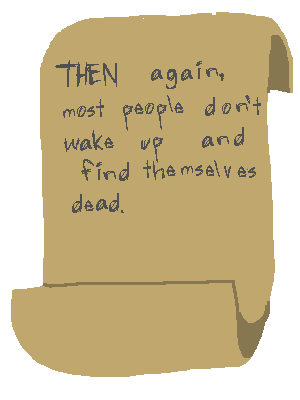 THEN again,
most people don't
wake up and
find themselves
dead.